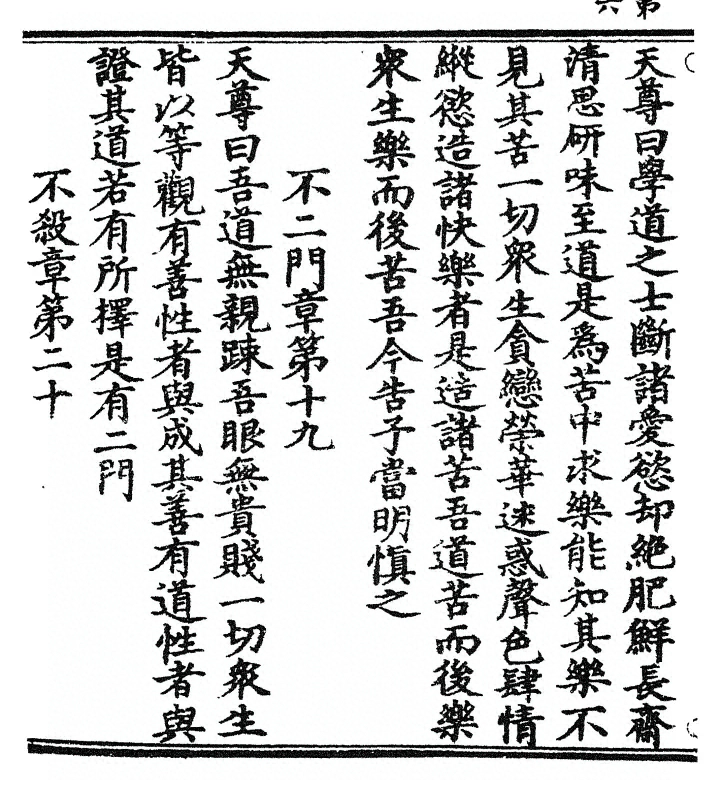 第
六
天尊曰學道之士斷諸愛慾却絶肥鮮長齋
清思研味至道是爲苦中求樂能知其樂不
見其苦一切衆生貪戀榮華迷惑聲色肆情
縱慾造諸快樂者是造諸苦吾道苦而後樂
衆生樂而後苦吾今告子當明愼之
不二門章第十九
天尊曰吾道無親踈吾眼無貴賤一切衆生
皆以等觀有善性者與成其善有道性者與
證其道若有所擇是有二門
不殺章第二十